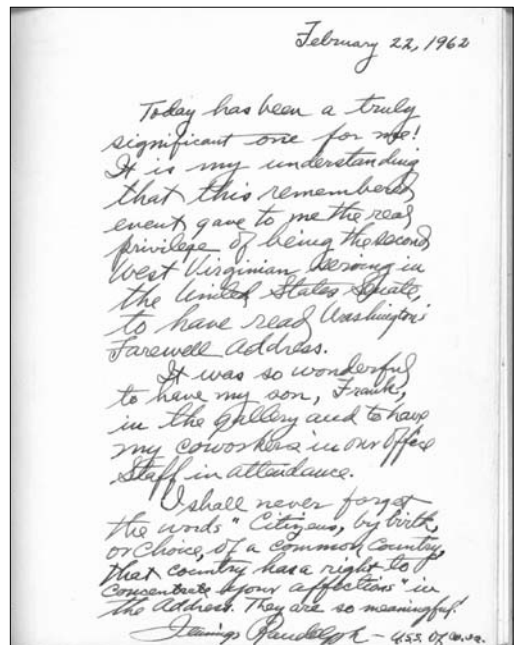 February 22, 1962
Today has been a truly
significant one for me!
It is my understanding
that this remembered
event gave to me the real
privilege of being the second
West Virginian serving in
the United States Senate,
to have read Washington's
Farewell Address.
It was so wonderful
to have my son, Frank,
in the gallery and to have
my coworkers in our office
staff in attendance.
I shall never forget
the words "Citizens, by birth,
or choice, of a common country,
that country has a right to
concentrate your affections" in
the Address. They are so meaningful!
Jennings Randolph – U.S.S. of W.Va.